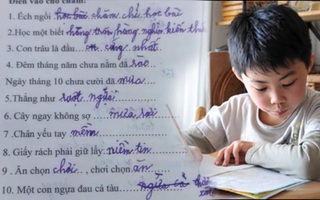 Điền vào chỗ chấm:
1. Ếch ngồi học bài chăm chỉ học bài
2.Học một biết hàng trăm hàng nghìn kiến thức
3. Con trâu là đầu... ăn cỏ nhất.
4. Đêm tháng năm chưa nằm đã ...rao...
Ngày tháng 10 chưa cười đã mưa
5.Thẳng như ruột ngựa
6. Cây ngay không sợ ... mưa rơi
7 .Chân yếu tay mềm
8. Giấy rách phải giữ lấy niềm tin
9 . Ăn chọn chơi , chơi chọn ăn
10. Một con ngựa đau cả tàu ngựa cả